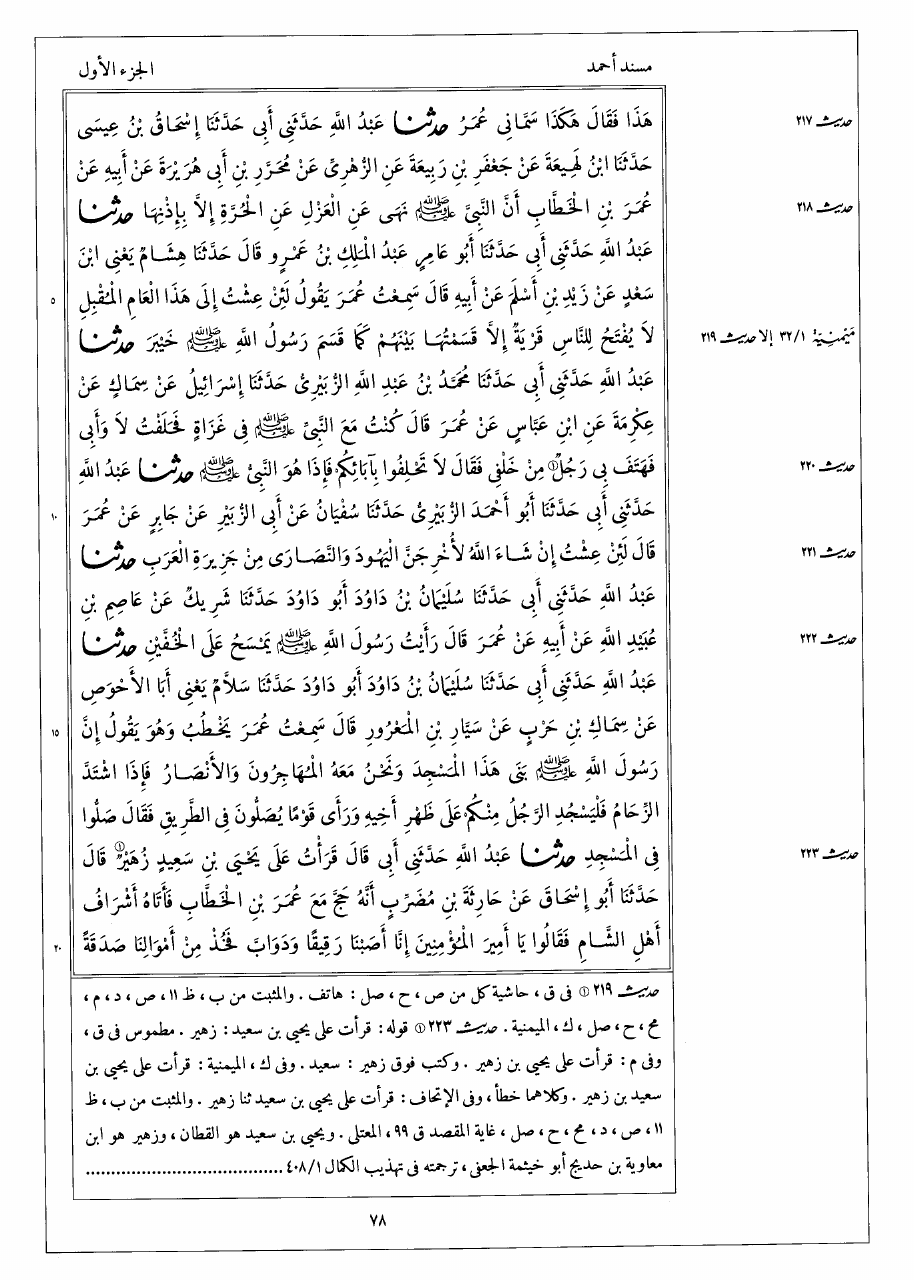 مسند أحمد
الجزء الأول
هَذَا فَقَالَ هَكَذَا سَمَّانِي عُمَرُ حدثنا عَبْدُ اللَّهِ حَدَّثَنِي أَبِي حَدَّثَنَا إِسْحَاقُ بْنُ عِيسَى
حديث ٢١٧
حَدَّثَنَا ابْنُ لَهِيعَةَ عَنْ جَعْفَرِ بْنِ رَبِيعَةَ عَنِ الزُّهْرِيِّ عَنْ مُحَرَّرِ بْنِ أَبِي هُرَيْرَةَ عَنْ أَبِيهِ عَنْ
عُمَرَ بْنِ الْخَطَّابِ أَنَّ النَّبِيَّ ﷺ نَهَى عَنِ الْعَزْلِ عَنِ الْحُرَّةِ إِلاَّ بِإِذْنِهَا حدثنا
حديث ٢١٨
عَبْدُ اللَّهِ حَدَّثَنِي أَبِي حَدَّثَنَا أَبُو عَامِرٍ عَبْدُ الْمَلِكِ بْنُ عَمْرٍو قَالَ حَدَّثَنَا هِشَامٌ يَعْنِي ابْنَ
سَعْدٍ عَنْ زَيْدِ بْنِ أَسْلَمَ عَنْ أَبِيهِ قَالَ سَمِعْتُ عُمَرَ يَقُولُ لَئِنْ عِشْتُ إِلَى هَذَا الْعَامِ الْمُقْبِلِ
٥
لاَ يُفْتَحُ لِلنَّاسِ قَرْيَةٌ إِلاَّ قَسَمْتُهَا بَيْنَهُمْ كَمَا قَسَمَ رَسُولُ اللَّهِ ﷺ خَيْبَرَ حدثنا
ميمنية ٣٢/١ إلا حديث ٢١٩
عَبْدُ اللَّهِ حَدَّثَنِي أَبِي حَدَّثَنَا مُحَمَّدُ بْنُ عَبْدِ اللَّهِ الزُّبَيْرِيُّ حَدَّثَنَا إِسْرَائِيلُ عَنْ سِمَاكٍ عَنْ
عِكْرِمَةَ عَنِ ابْنِ عَبَّاسٍ عَنْ عُمَرَ قَالَ كُنْتُ مَعَ النَّبِيِّ ﷺ فِي غَزَاةٍ فَحَلَفْتُ لاَ وَأَبِي
فَهَتَفَ بِي رَجُلٌ① مِنْ خَلْفِي فَقَالَ لاَ تَحْلِفُوا بِآبَائِكُمْ فَإِذَا هُوَ النَّبِيُّ ﷺ حدثنا عَبْدُ اللَّهِ
حديث ٢٢٠
حَدَّثَنِي أَبِي حَدَّثَنَا أَبُو أَحْمَدَ الزُّبَيْرِيُّ حَدَّثَنَا سُفْيَانُ عَنْ أَبِي الزُّبَيْرِ عَنْ جَابِرٍ عَنْ عُمَرَ
١٠
قَالَ لَئِنْ عِشْتُ إِنْ شَاءَ اللَّهُ لأُخْرِجَنَّ الْيَهُودَ وَالنَّصَارَى مِنْ جَزِيرَةِ الْعَرَبِ حدثنا
حديث ٢٢١
عَبْدُ اللَّهِ حَدَّثَنِي أَبِي حَدَّثَنَا سُلَيْمَانُ بْنُ دَاوُدَ أَبُو دَاوُدَ حَدَّثَنَا شَرِيكٌ عَنْ عَاصِمِ بْنِ
عُبَيْدِ اللَّهِ عَنْ أَبِيهِ عَنْ عُمَرَ قَالَ رَأَيْتُ رَسُولَ اللَّهِ ﷺ يَمْسَحُ عَلَى الْخُفَّيْنِ حدثنا
حديث ٢٢٢
عَبْدُ اللَّهِ حَدَّثَنِي أَبِي حَدَّثَنَا سُلَيْمَانُ بْنُ دَاوُدَ أَبُو دَاوُدَ حَدَّثَنَا سَلاَّمٌ يَعْنِي أَبَا الأَحْوَصِ
عَنْ سِمَاكِ بْنِ حَرْبٍ عَنْ سَيَّارِ بْنِ الْمَعْرُورِ قَالَ سَمِعْتُ عُمَرَ يَخْطُبُ وَهُوَ يَقُولُ إِنَّ
١٥
رَسُولَ اللَّهِ ﷺ بَنَى هَذَا الْمَسْجِدَ وَنَحْنُ مَعَهُ الْمُهَاجِرُونَ وَالأَنْصَارُ فَإِذَا اشْتَدَّ
الزِّحَامُ فَلْيَسْجُدِ الرَّجُلُ مِنْكُمْ عَلَى ظَهْرِ أَخِيهِ وَرَأَى قَوْمًا يُصَلُّونَ فِي الطَّرِيقِ فَقَالَ صَلُّوا
فِي الْمَسْجِدِ حدثنا عَبْدُ اللَّهِ حَدَّثَنِي أَبِي قَالَ قَرَأْتُ عَلَى يَحْيَى بْنِ سَعِيدٍ زُهَيْرٌ① قَالَ
حديث ٢٢٣
حَدَّثَنَا أَبُو إِسْحَاقَ عَنْ حَارِثَةَ بْنِ مُضَرِّبٍ أَنَّهُ حَجَّ مَعَ عُمَرَ بْنِ الْخَطَّابِ فَأَتَاهُ أَشْرَافُ
أَهْلِ الشَّامِ فَقَالُوا يَا أَمِيرَ الْمُؤْمِنِينَ إِنَّا أَصَبْنَا رَقِيقًا وَدَوَابَّ فَخُذْ مِنْ أَمْوَالِنَا صَدَقَةً
٢٠
حديث ٢١٩ ① في ق ، حاشية كل من ص ، ح ، صل : هاتف . والمثبت من ب ، ظ ١١ ، ص ، د ، م ،
مح ، ح ، صل ، ك ، الميمنية . حديث ٢٢٣ ① قوله : قرأت على يحيى بن سعيد : زهير . مطموس في ق ،
وفي م : قرأت على يحيى بن زهير . وكتب فوق زهير : سعيد . وفي ك ، الميمنية : قرأت على يحيى بن
سعيد بن زهير . وكلاهما خطأ ، وفي الإتحاف : قرأت على يحيى بن سعيد ثنا زهير . والمثبت من ب ، ظ
١١ ، ص ، د ، مح ، ح ، صل ، غاية المقصد ق ٩٩ ، المعتلي . ويحيى بن سعيد هو القطان ، وزهير هو ابن
معاوية بن حديج أبو خيثمة الجعفي ، ترجمته في تهذيب الكمال ٤٠٨/١ .......................................
٧٨